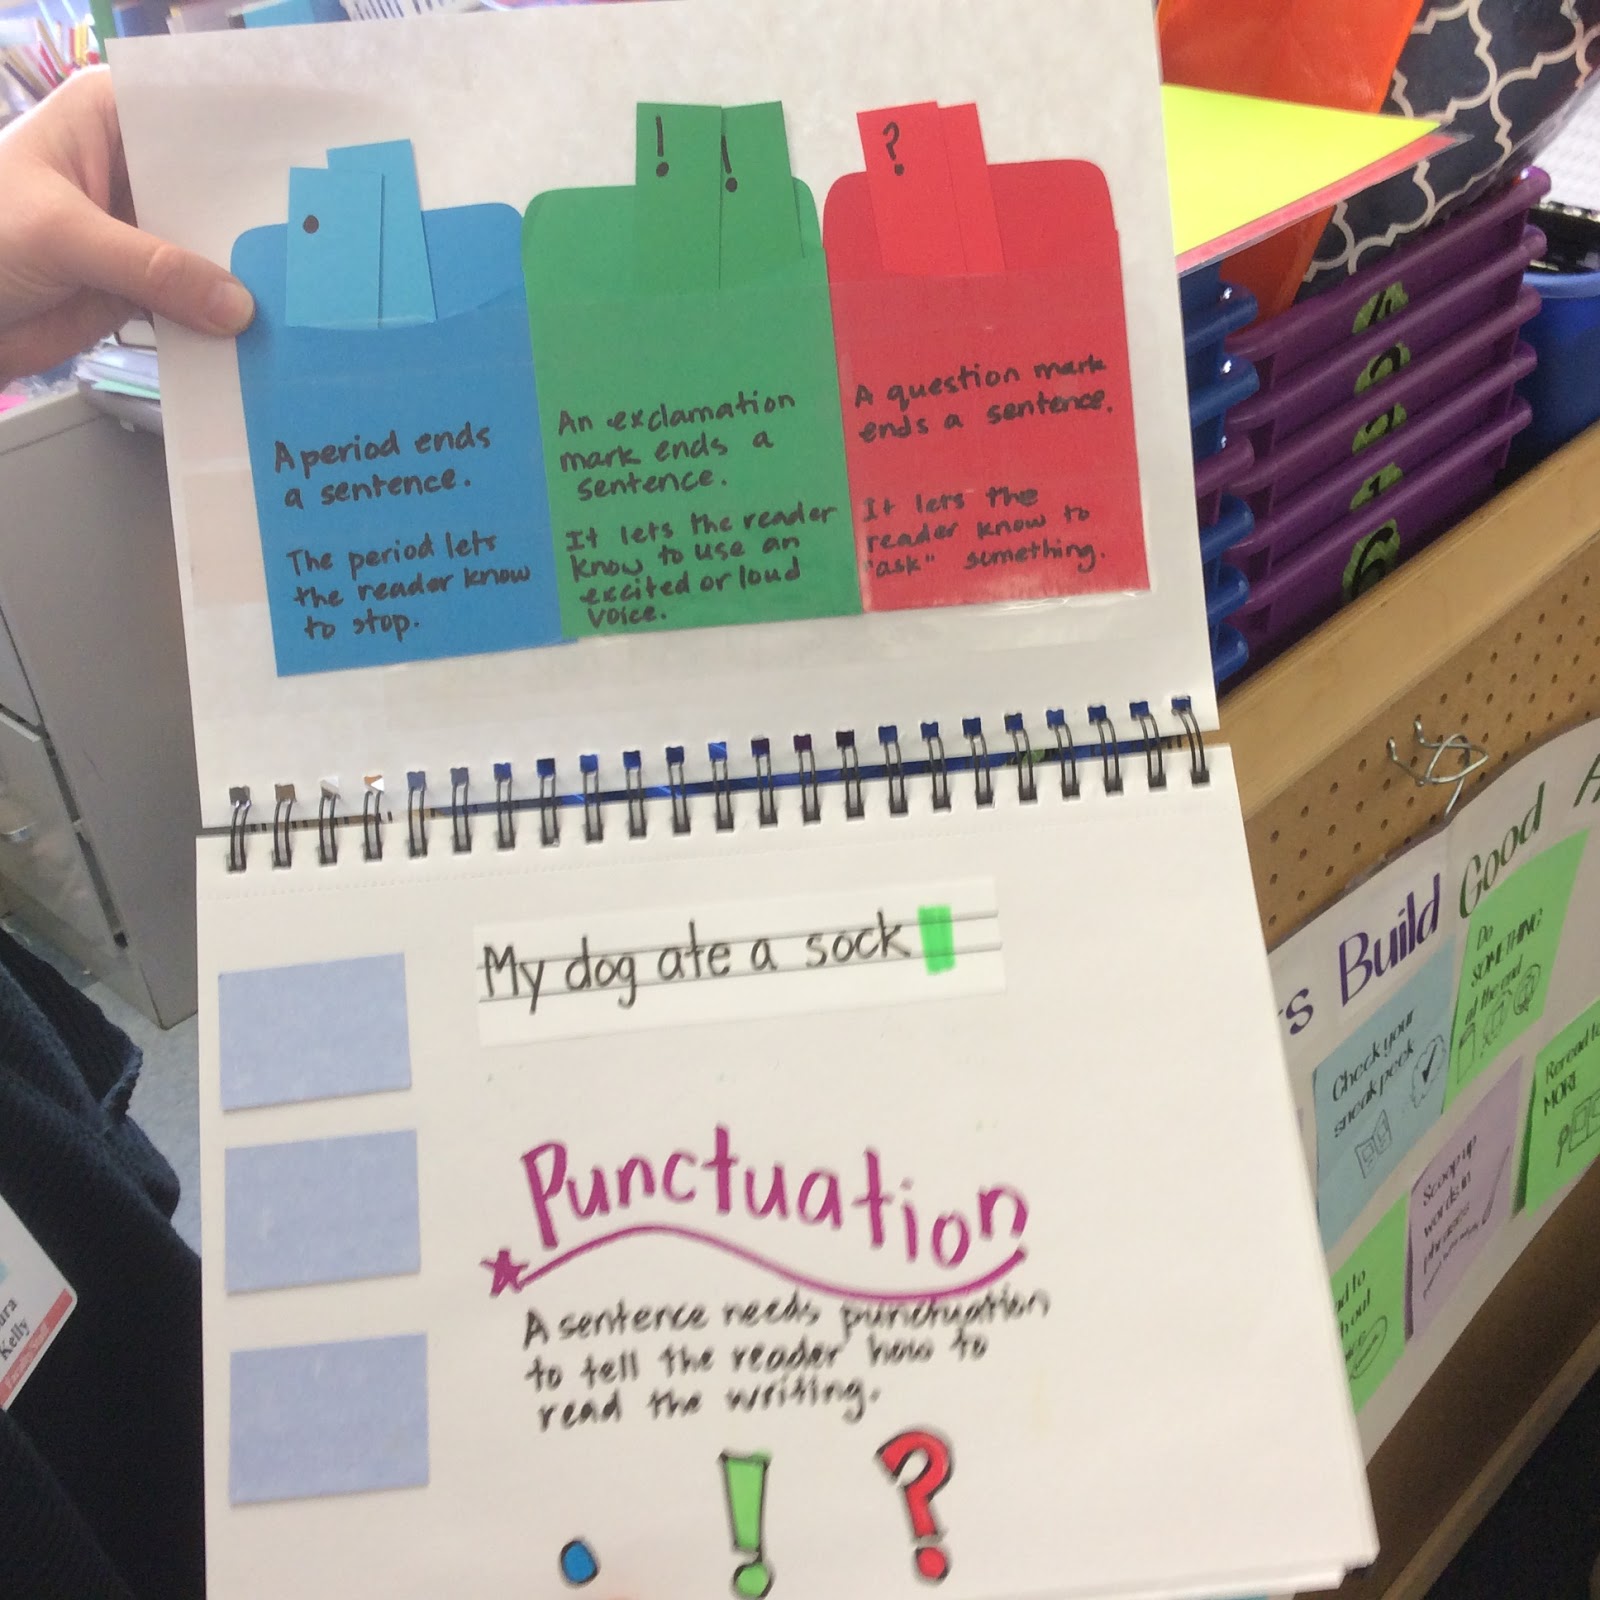 .
!
!
?
A period ends
a sentence.
The period lets
the reader know
to stop.
An exclamation
mark ends a
sentence.
It lets the reader
know to use an
excited or loud
voice.
A question mark
ends a sentence.
It lets the
reader know to
"ask" something.
My dog ate a sock
Punctuation
A sentence needs punctuation
to tell the reader how to
read the writing.
. ! ?
Build Good
Check your
sneak peek
Do
SOMETHING
at the end
Scoop up
words in
phrases
Reread to
MORE
Kelly
6